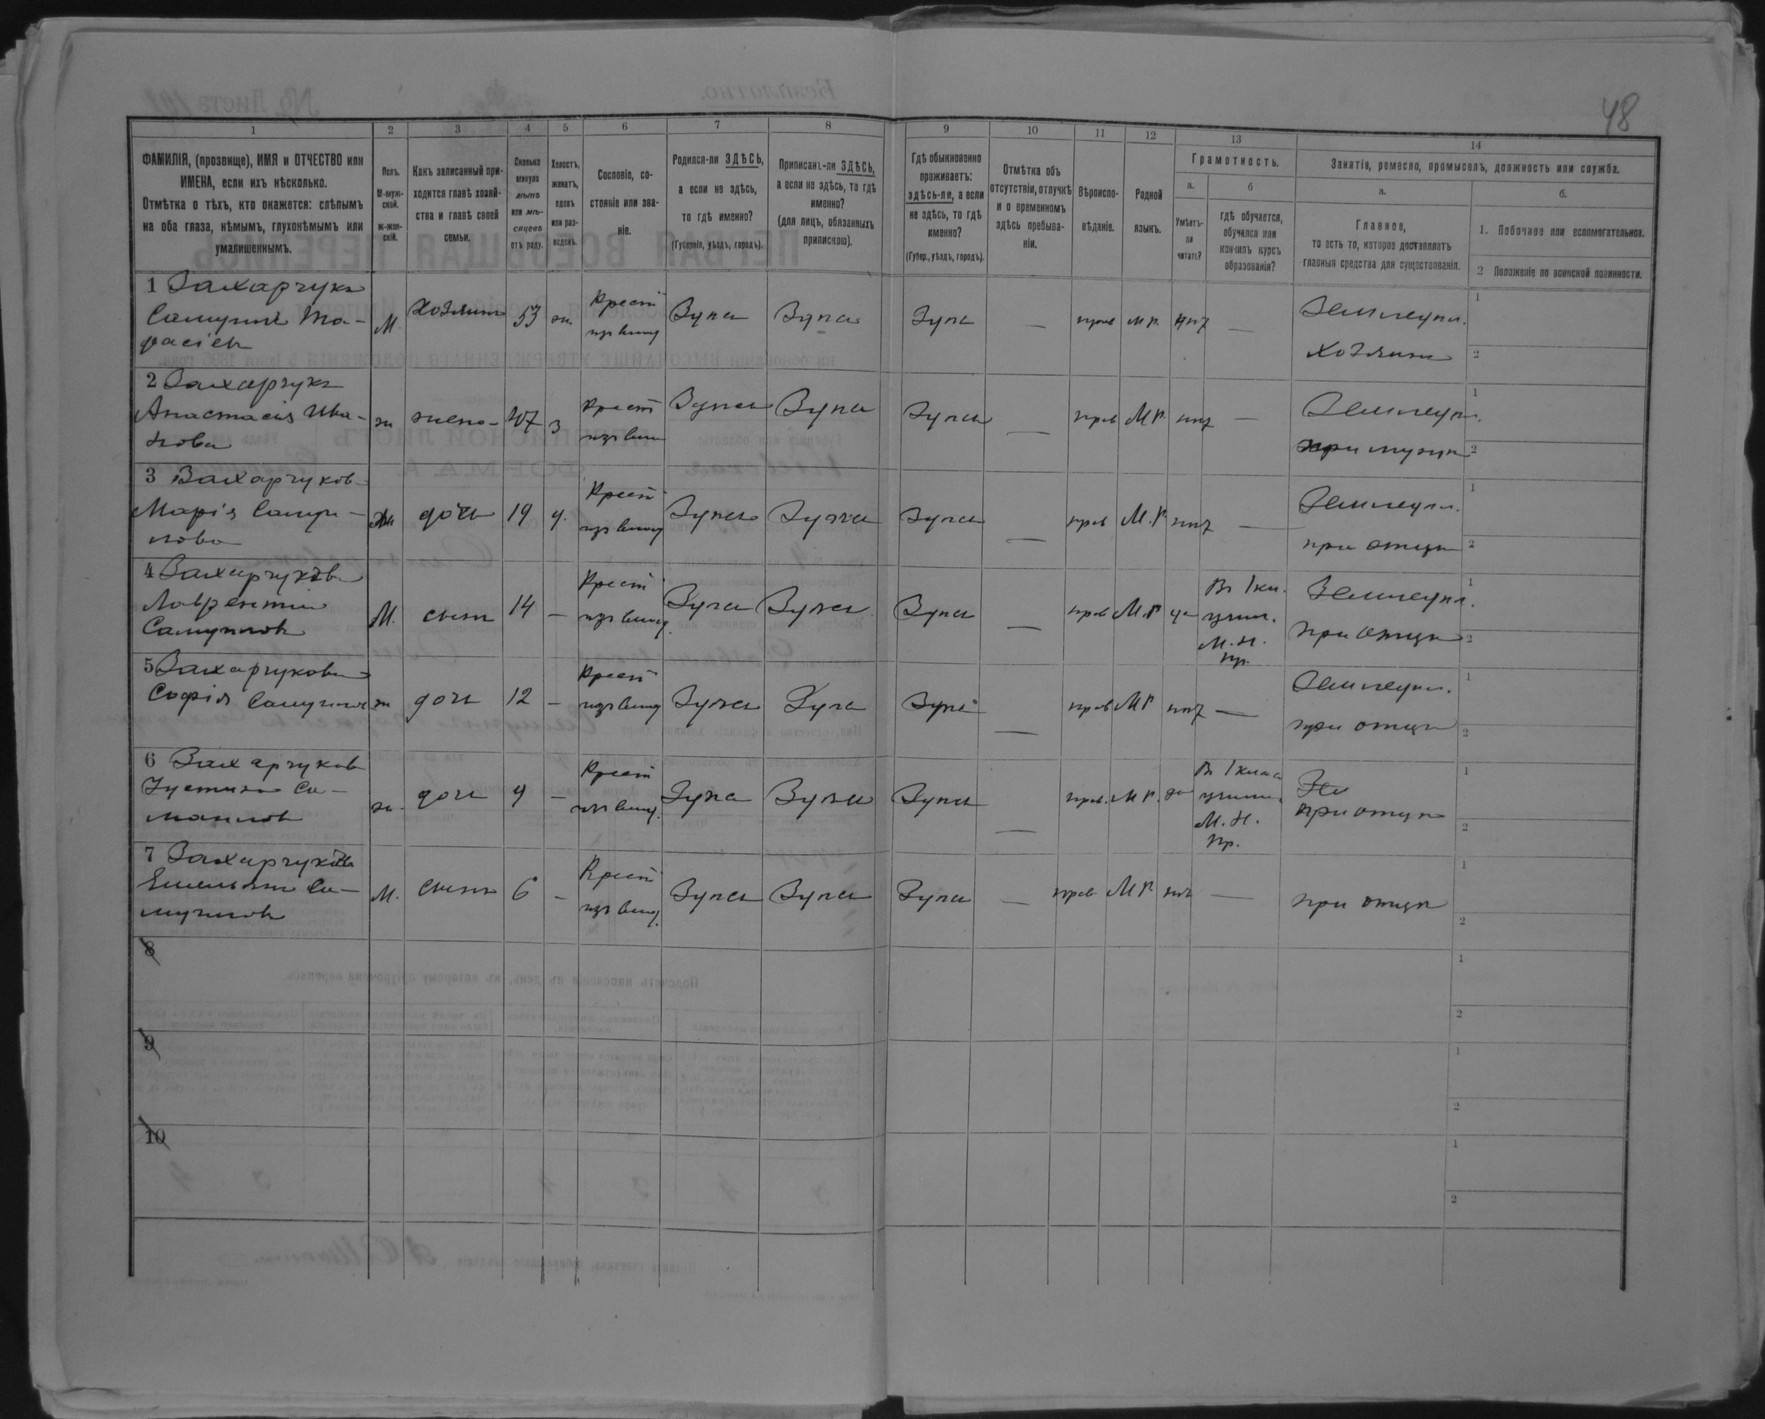 48
1 2 3 4 5 6 7 8 9 10 11 12 13 14
ФАМИЛІЯ, (прозвище), ИМЯ и ОТЧЕСТВО или
ИМЕНА, если ихъ нѣсколько.
Отмѣтка о тѣхъ, кто окажется: слѣпымъ
на оба глаза, нѣмымъ, глухонѣмымъ или
умалишеннымъ.
Полъ.
М-муж-
ской.
Ж-жен-
скій.
Какъ записанный при-
ходится главѣ хозяй-
ства и главѣ своей
семьи.
Сколько
минуло
лѣтъ
или мѣ-
сяцевъ
отъ роду.
Холостъ,
женатъ,
вдовъ
или раз-
веденъ.
Сословіе, со-
стояніе или зва-
ніе.
Родился-ли ЗДѢСЬ,
а если не здѣсь,
то гдѣ именно?
(Губернія, уѣздъ, городъ).
Приписанъ-ли ЗДѢСЬ,
а если не здѣсь, то гдѣ
именно?
(для лицъ, обязанныхъ
припискою).
Гдѣ обыкновенно
проживаетъ:
здѣсь-ли, а если
не здѣсь, то гдѣ
именно?
(Губер., уѣздъ, городъ).
Отмѣтка объ
отсутствіи, отлучкѣ
и о временномъ
здѣсь пребыва-
ніи.
Вѣроиспо-
вѣданіе.
Родной
языкъ.
Грамотность.
а.
Умѣетъ-
ли
читать?
б
гдѣ обучается,
обучался или
кончилъ курсъ
образованія?
Занятіе, ремесло, промыселъ, должность или служба.
а.
Главное,
то есть то, которое доставляетъ
главныя средства для существованія.
б.
1. Побочное или вспомогательное.
2 Положеніе по воинской повинности.
1 Захарчукъ
Самуилъ Та-
расіевъ
М. хозяинъ 53 ж. Крест.
Здѣсь Здѣсь Здѣсь — прав М.Р. нѣтъ —
Земледѣл.
Хозяинъ
2 Захарчукъ
Анастасія Ива-
нова
ж жена 47 з Крест
Здѣсь Здѣсь Здѣсь — прав М.Р. нѣтъ —
Земледѣл.
при мужѣ
3 Захарчуков
Марія Самуи-
лова
ж дочь 19 д. Крест
Здѣсь Здѣсь Здѣсь — прав М.Р. нѣтъ —
Земледѣл.
при отцѣ
4 Захарчуковъ
Лаврентій
Самуиловъ
М. сынъ 14 — Крест
Здѣсь Здѣсь Здѣсь — прав М.Р. да
В 1 кл.
учил.
М.Н.
Пр.
Земледѣл.
при отцѣ
5 Захарчукова
Софія Самуилов
ж дочь 12 — Крест
Здѣсь Здѣсь Здѣсь — прав М.Р. нѣтъ —
Земледѣл.
при отцѣ
6 Захарчуков
Устинья Са-
моилов
ж. дочь 9 — Крест
Здѣсь Здѣсь Здѣсь — прав. М.Р. да
В 1 класс
учили.
М.Н.
Пр.
при отцѣ
7 Захарчуковъ
Емельянъ Са-
муиловъ
М. сынъ 6 — Крест
Здѣсь Здѣсь Здѣсь — прав М.Р. нѣтъ —
при отцѣ
8
9
10